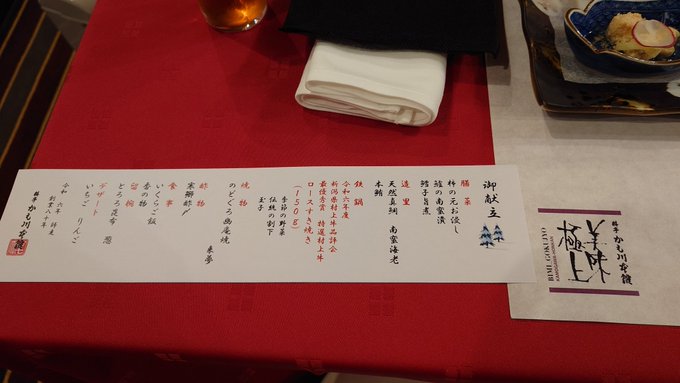 御献立
膳菜
柿の元お浸し
鱧の南蛮漬
鱈子旨煮
造里
天然真鯛 南蛮海老
本鮪
鉄鍋
令和六年度
新潟県村上牛品評会
最優秀賞 特選村上牛
ロースすき焼き
(150g)
季節の野菜
伝統の割下
玉子
焼物
のどぐろ幽庵焼
来夢
酢物
寒鰤酢〆
食事
いくらご飯
香の物
留椀
とろろ昆布 葱
デザート
いちご りんご
令和 六年 師走
創業八十年
割烹 かも川本館
割烹 かも川本館
美味
極上
BIMI GOKUJYO
KAMOGAWA-HONKAN